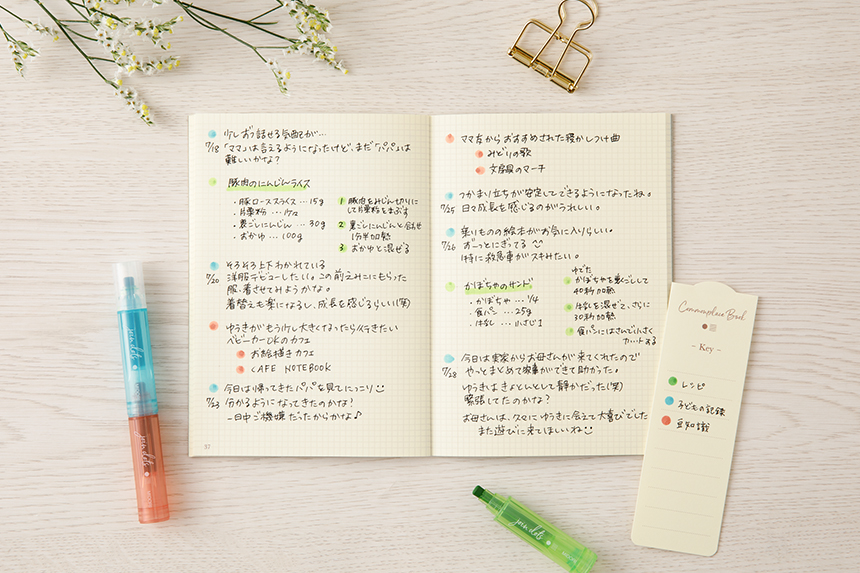 少しおつ話せる気配が…
7/18 「ママ」は言えるようになったけど、まだ「パパ」は
難しいかな?
豚肉のにんじんライス
・豚ローススライス…15g
・片栗粉…少々
・裏ごしにんじん…30g
・おかゆ…100g
1 豚肉をみじん切りに
して片栗粉をまぶす
2 裏ごしにんじんと合せ
1分半加熱
3 おかゆと混ぜる
そろそろ上下わかれている
7/20 洋服デビューしたい。この前えみこにもらった
服、着させてみようかな。
着替えも楽になるし、成長を感じるらしい(笑)
ゆうきがもう少し大きくなったら行きたい
ベビーカーOKのカフェ
お絵描きカフェ
CAFE NOTEBOOK
今日は帰ってきたパパを見てにっこり
7/23 分かるようになってきたのかな!
一日中ご機嫌だったからかな♪
37
ママ友からおすすめされた寝かしつけ曲
みどりの歌
文房具のマーチ
つかまり立ちが安定してできるようになったね。
7/25 日々成長を感じるのがうれしい。
乗りものの絵本がお気に入りらしい。
7/26 ずーっとにぎってる
特に救急車がスキみたい。
かぼちゃのサンド
・かぼちゃ…1/4
・食パン…25g
・牛乳…小さじ1
ゆでた
かぼちゃを裏ごしして
40秒加熱
牛乳を混ぜて、さらに
30秒加熱
食パンにはさんで小さく
カットする
今日は実家からお母さんが来てくれたので
7/28 やっとまとめて家事ができて助かった。
ゆうきはきょとんとして静かだった(笑)
緊張してたのかな?
お母さんは、久々にゆうきに会えて大喜びでした
また遊びに来てほしいね
Commonplace Book
- Key -
レシピ
子どもの記録
豆知識
join dots
join dots
join dots